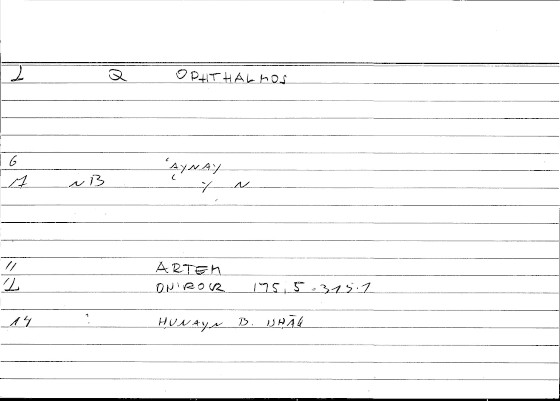 1 Q OPHTHALMOS
6 ʿAYNAY
NB ʿ Y N
11 ARTEM
ONIROCR 175,5 - 315.1
14 : HUNAYN B. ISHĀQ